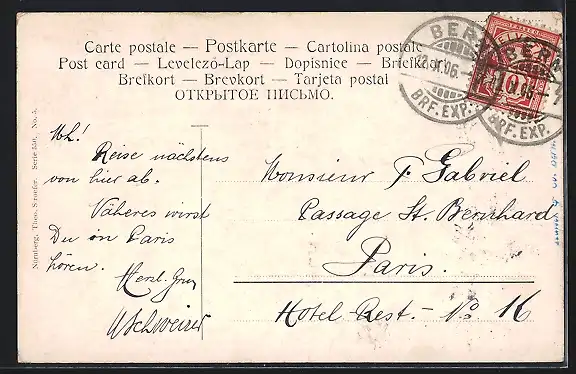 Carte postale — Postkarte — Cartolina postale
Post card — Levelező-Lap — Dopisnice — Briefkaart
Brefkort — Brevkort — Tarjeta postal
ОТКРЫТОЕ ПИСЬМО.
BERN
12.XI.06.
BRF. EXP.
BERN
BRF. EXP.
10
Nürnberg, Theo. Stroefer. Serie 550. No. 5.
Reise nächstens
von hier ab.
Näheres wirst
Du in Paris
hören.
Herzl. Gruss
Monsieur F. Gabriel
Passage St. Bernhard
Paris.
Hotel-Rest. - No 16